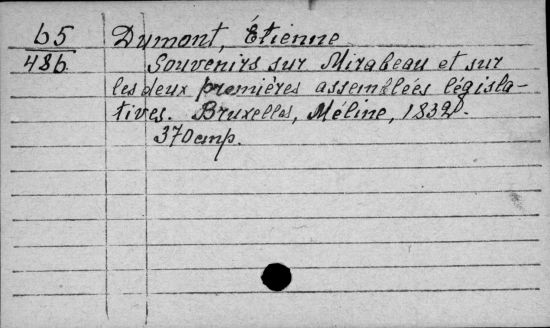 65 Dumont, Étienne
486 Souvenirs sur Mirabeau et sur
les deux premières assemblées législa-
tives. Bruxelles, Méline, 1832.
370 cmp.